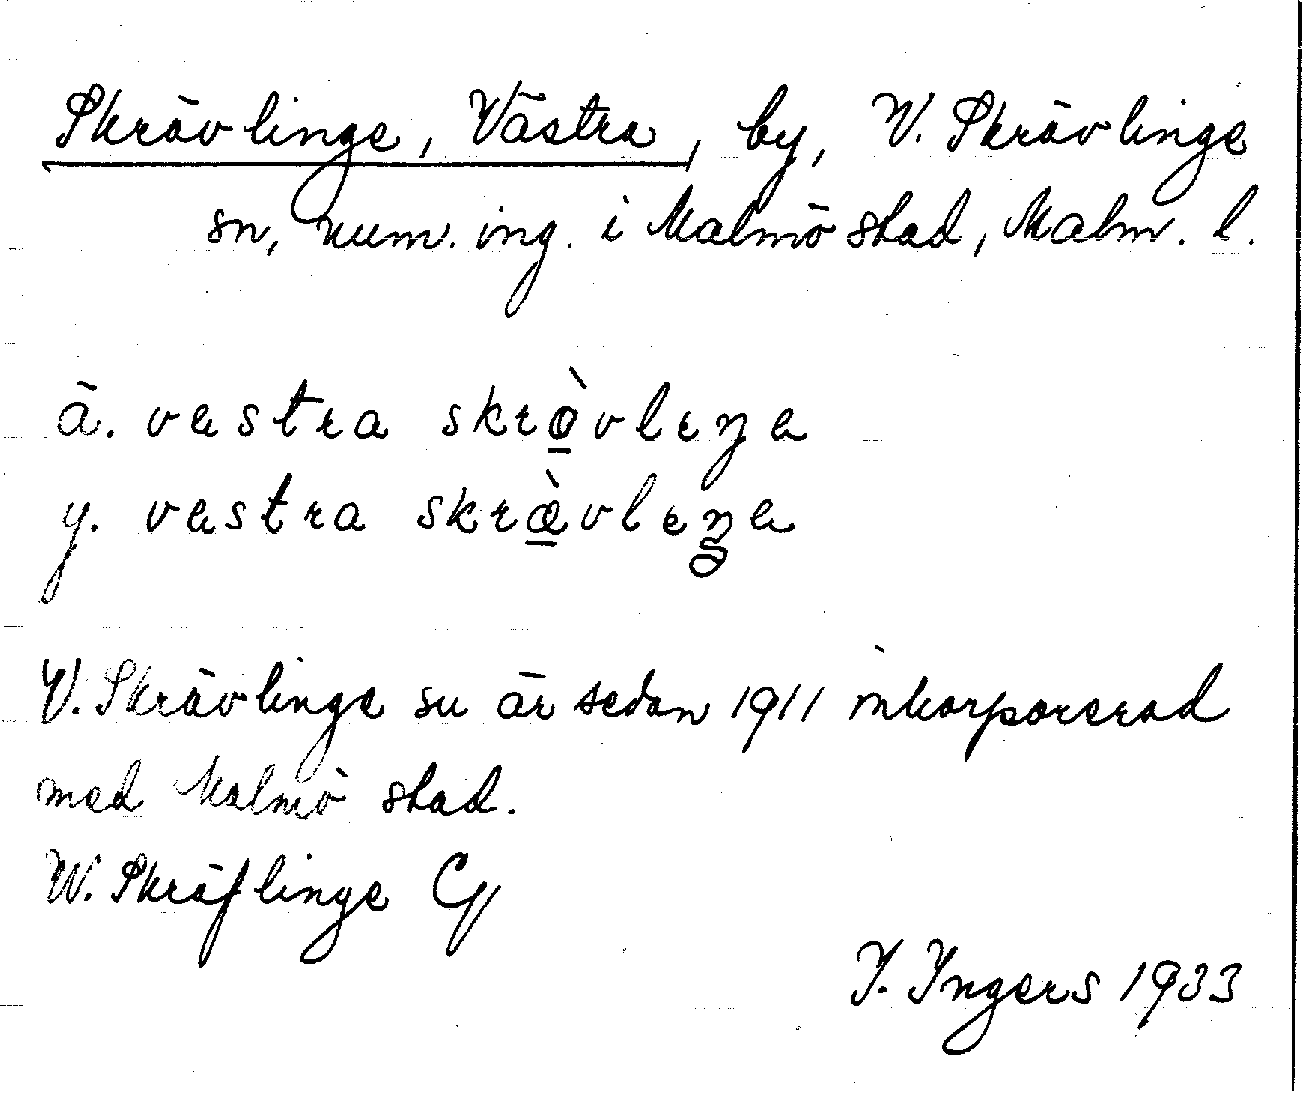 Skrävlinge, Västra, by, V. Skrävlinge
sn, num. ing. i Malmö stad, Malm. l.
ä. vastra skrò̱vleŋa
y. vastra skræ̱̀vleŋa
V. Skrävlinge sn är sedan 1911 inkorporerad
med Malmö stad.
W. Skräflinge
I. Ingers 1933